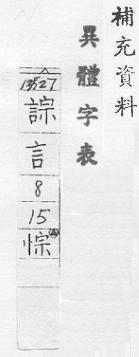 補充資料
異體字表
13527
誴
言
8
15
悰